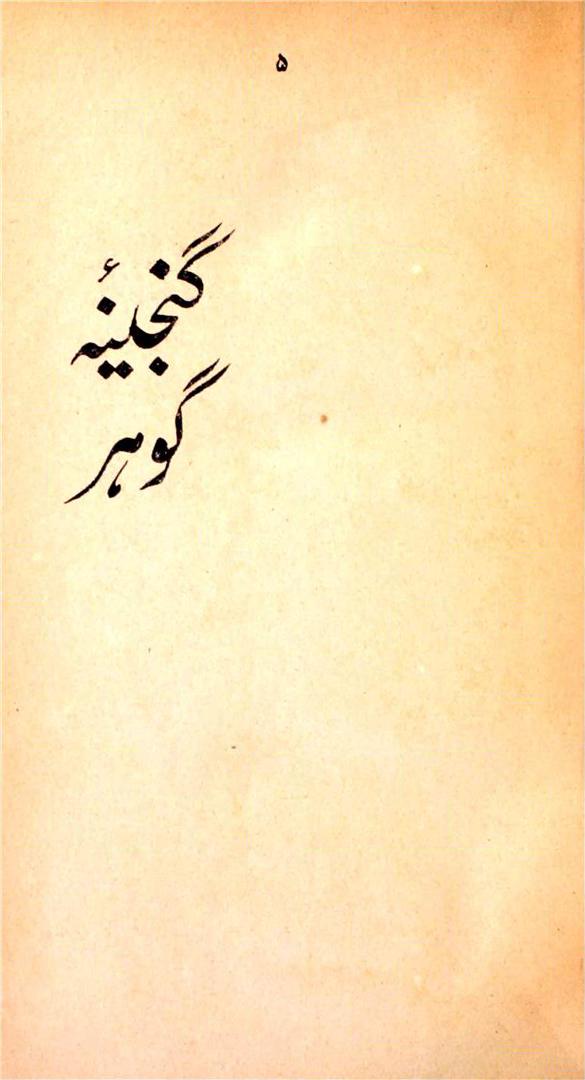 ۵
گنجینۂ
گوہر